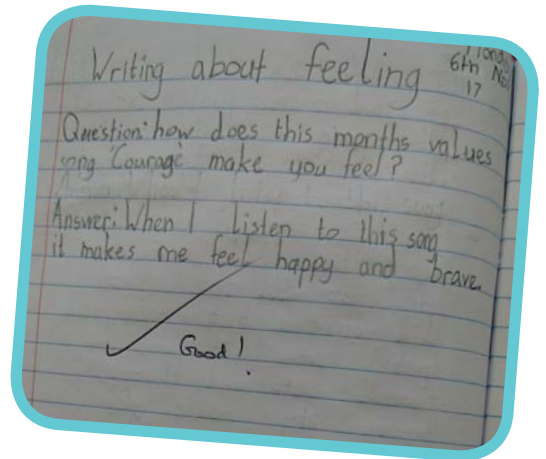 Writing about feeling
6th Nov
17
Question: how does this months values
song 'Courage' make you feel?
Answer: When I listen to this song
it makes me feel happy and brave.
Good!